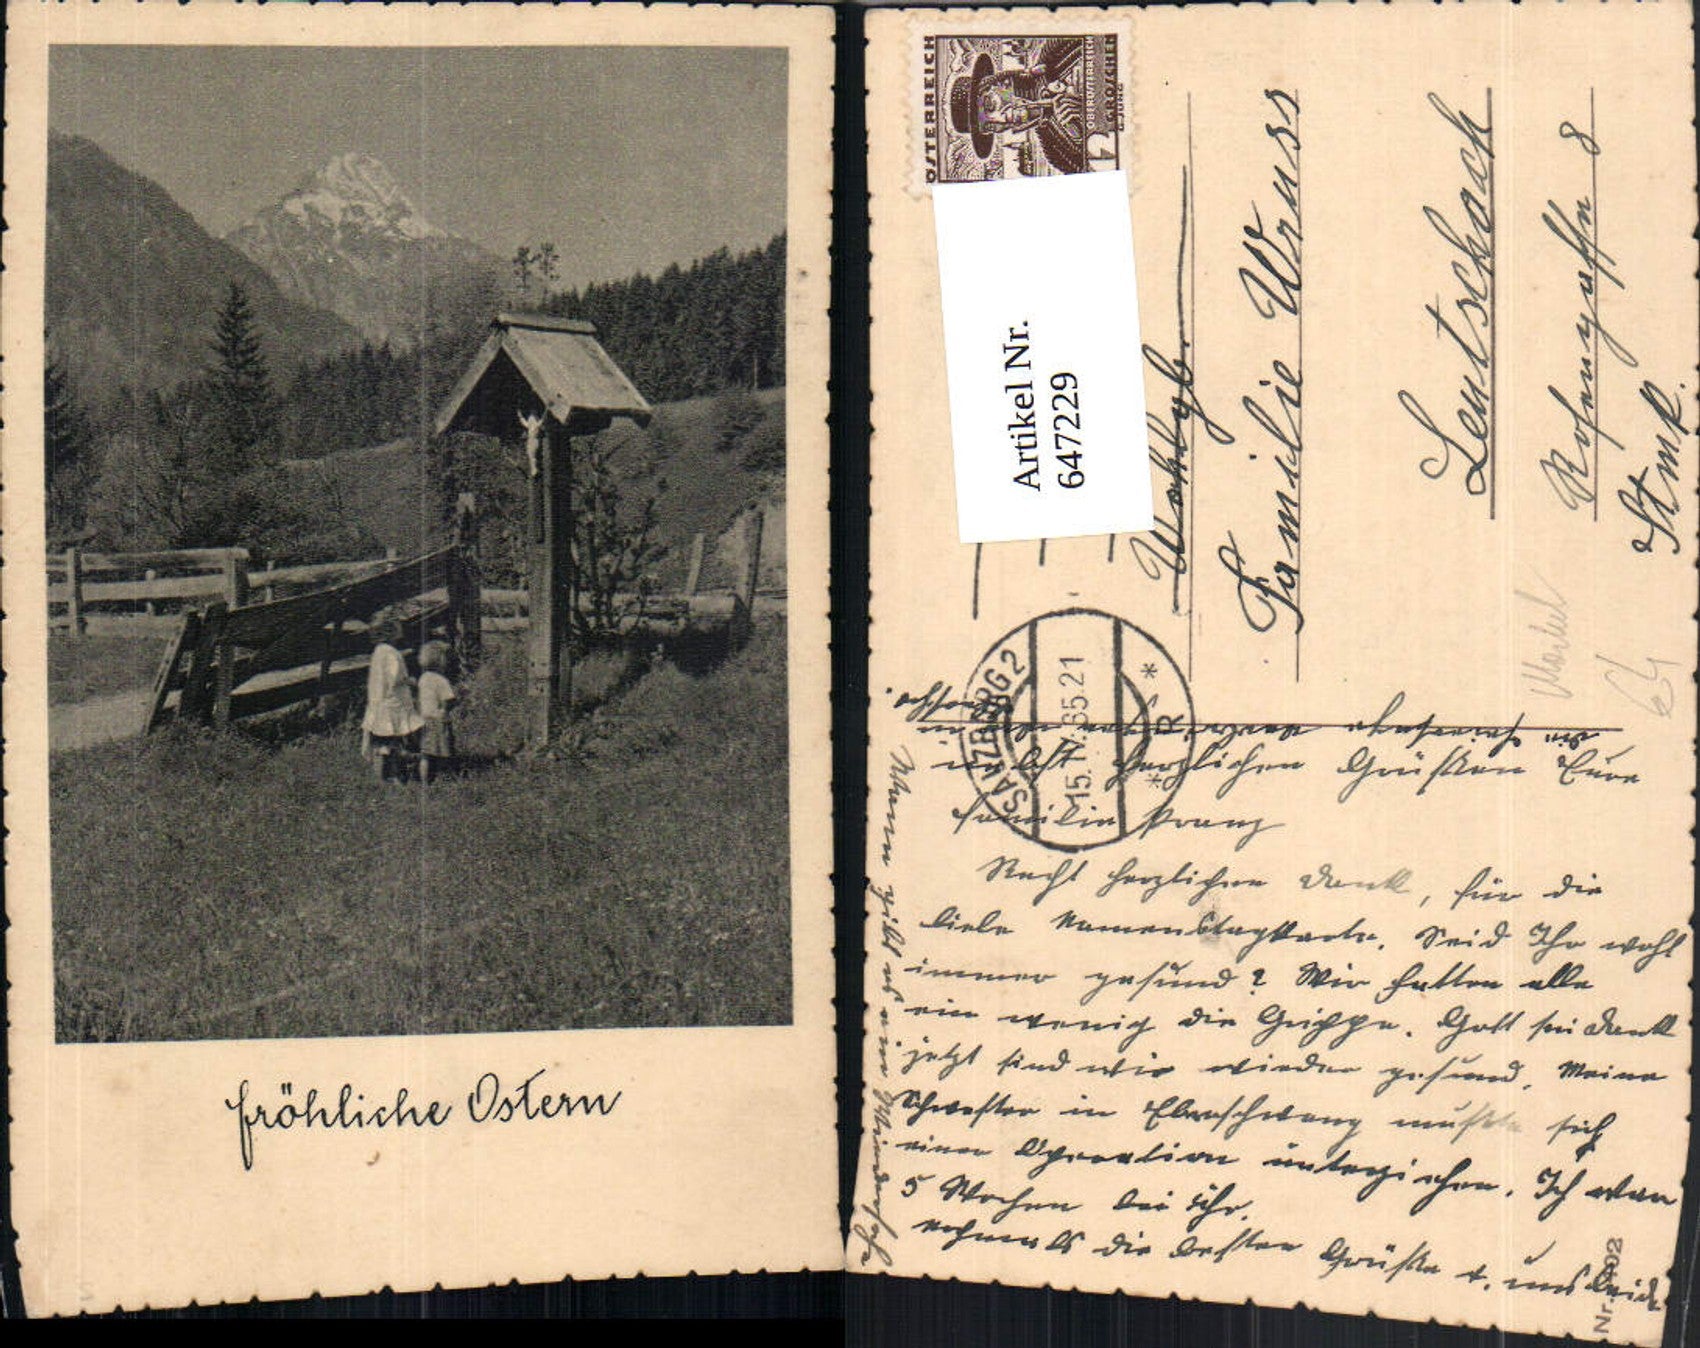 fröhliche Ostern
ÖSTERREICH
OBERÖSTERREICH
12 GROSCHEN
Artikel Nr.
647229
SALZBURG 2
15.IV.35.21
* R *
Wohlgb.
Familie Wruss
Leutschach
8
Stmk.
herzlichen Grüßen Eure
Familie Kranz
Recht herzlichen Dank, für die
liebe Namenstagkarte. Seid Ihr wohl
immer gesund? Wir hatten alle
ein wenig die Grippe. Gott sei Dank
jetzt sind wir wieder gesund. Meine
Schwester in Eberschwang mußte sich
einer Operation unterziehen. Ich war
5 Wochen bei ihr.
nochmals die besten Grüße
Wann gibt es ein Wiedersehn